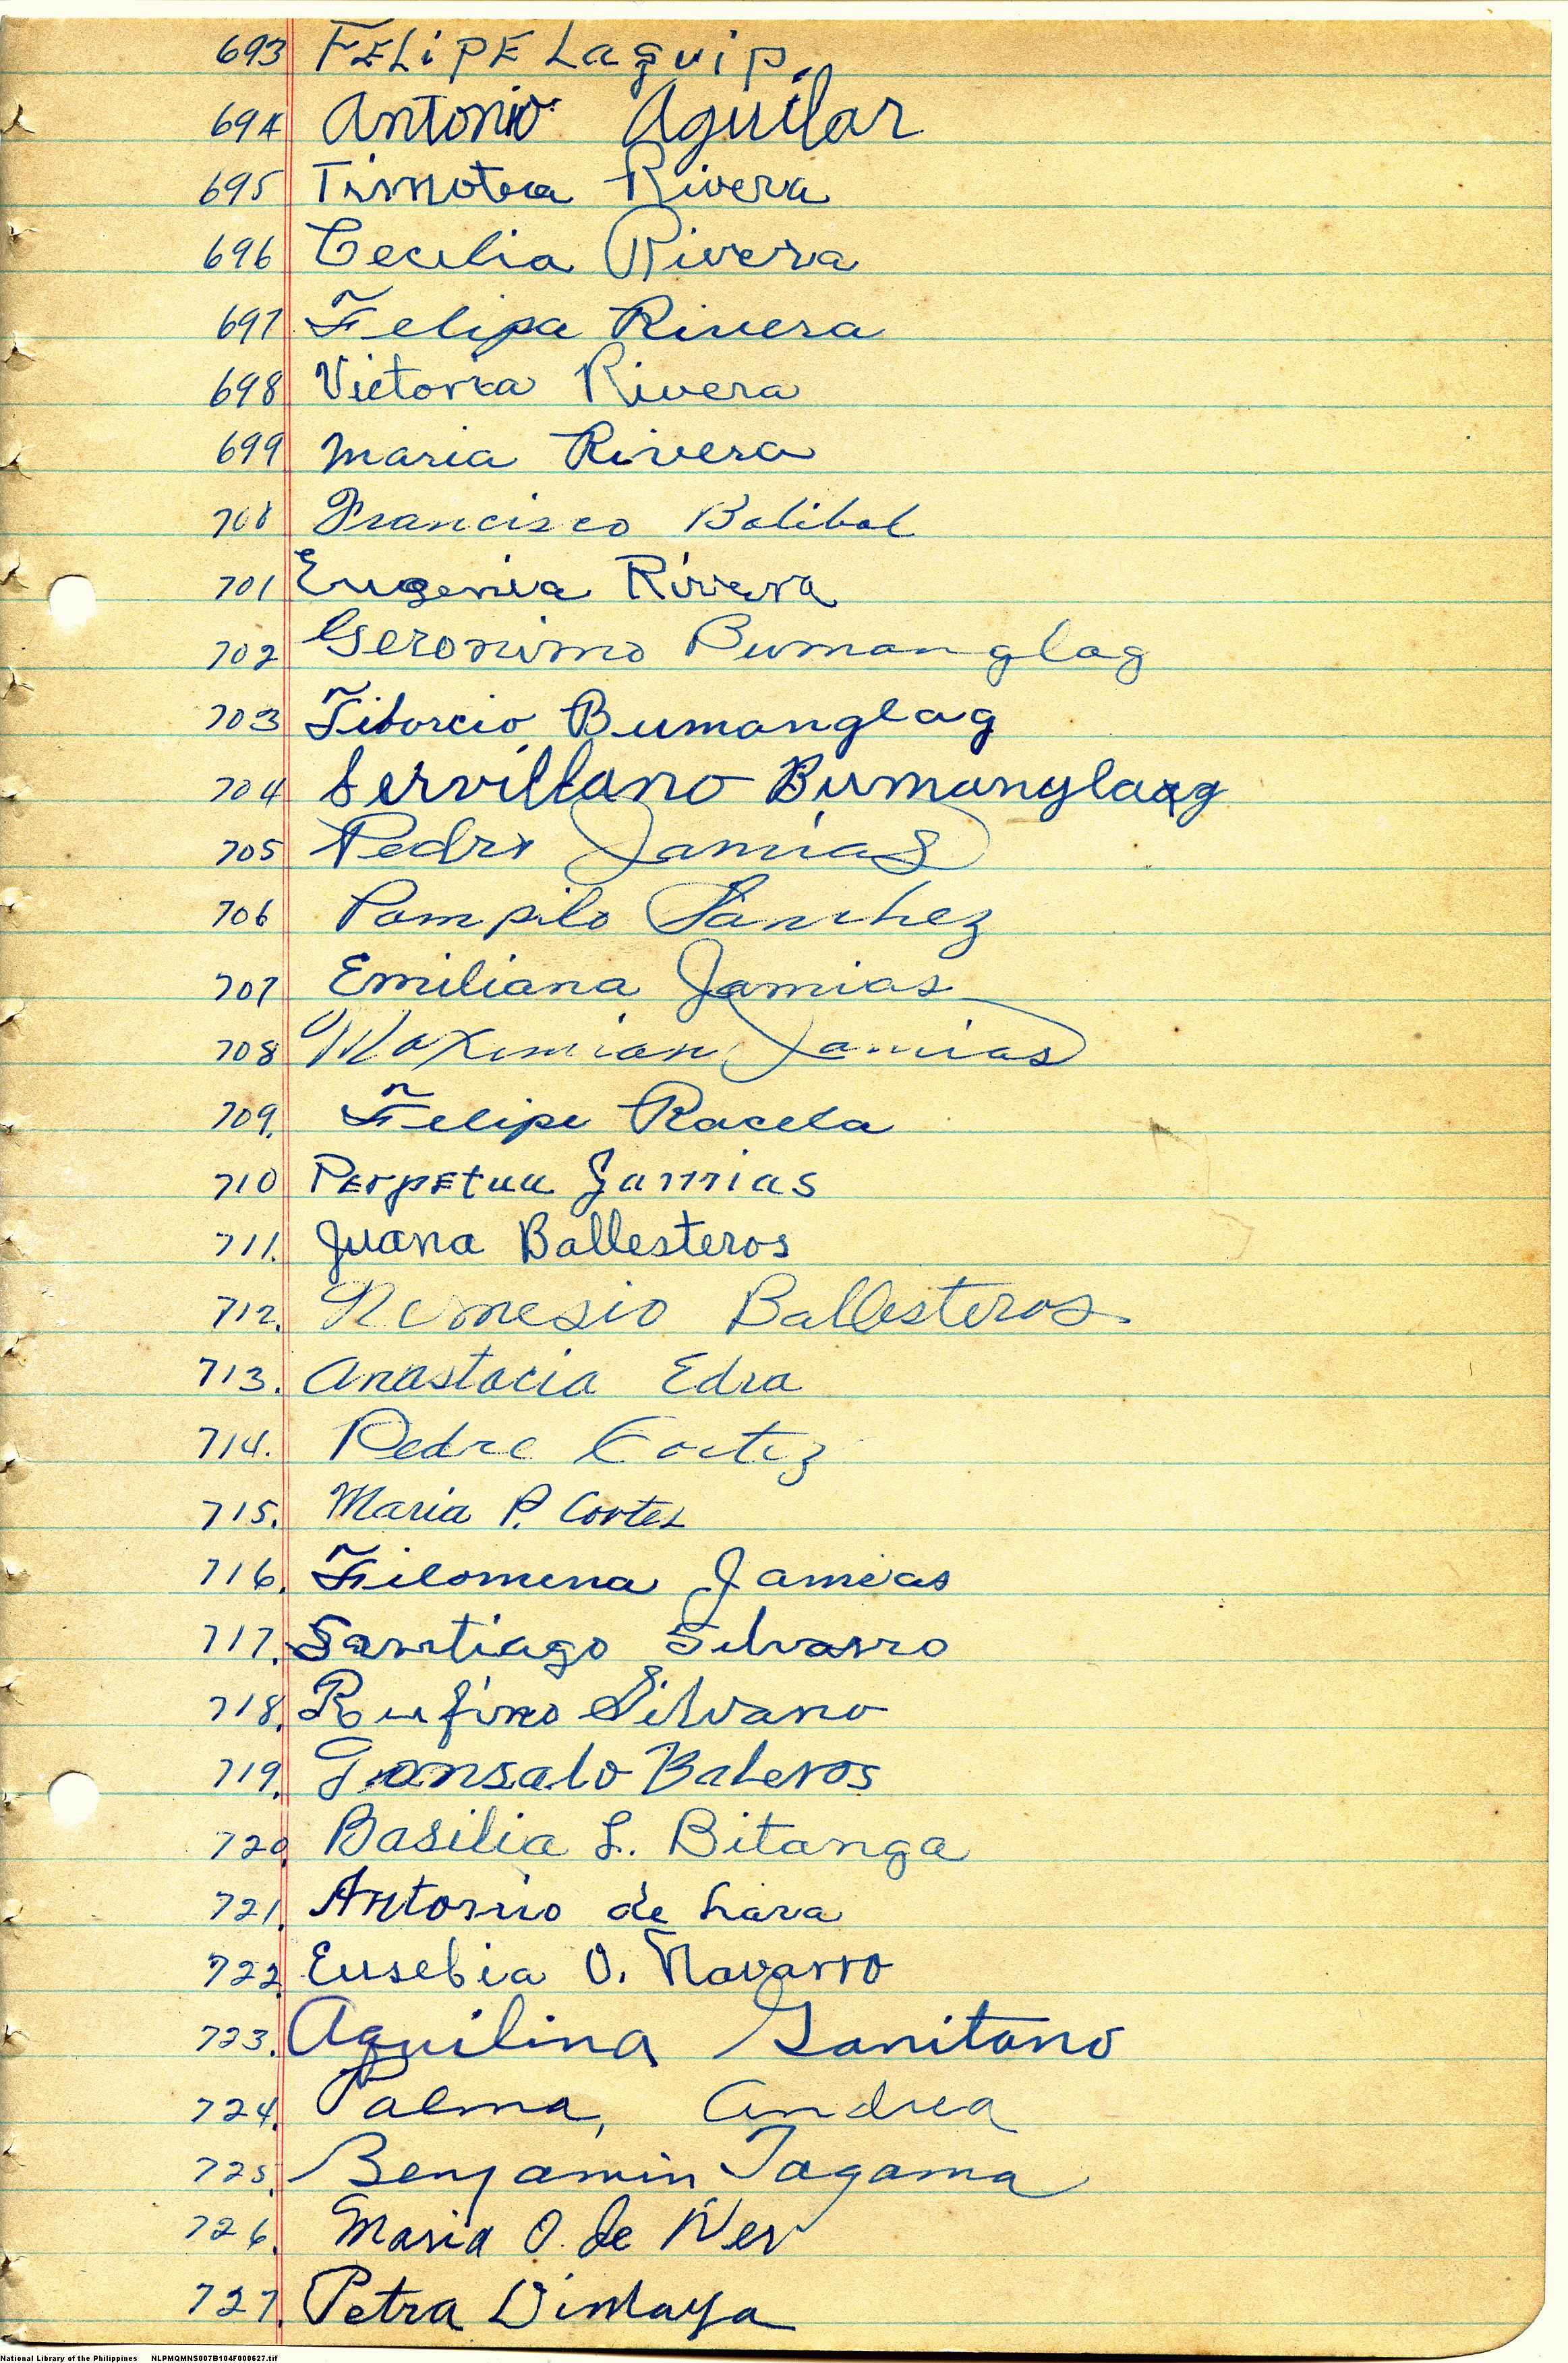 693 FELiPE Laguip.
694 Antonio Aguilar
695 Timotea Rivera
696 Cecilia Rivera
697 Felipa Rivera
698 Victoria Rivera
699 Maria Rivera
700 Francisco Balibal
701 Eugenia Rivera
702 Geronimo Bumanglag
703 Tiborcio Bumanglag
704 Servillano Bumanglag
705 Pedro Jamias
706 Pompilo Sanchez
707 Emiliana Jamias
708 Maximian Jamias
709. Felipe Racela
710 Perpetua Jamias
711. Juana Ballesteros
712. Nemesio Ballesteros
713. Anastacia Edra
714. Pedro Cortez
715. Maria P. Cortez
716. Filomena Jamias
717. Santiago Silvano
718. Rufino Silvano
719. Gonsalo Baleros
720. Basilia L. Bitanga
721. Antonio de Lara
722. Eusebia O. Navarro
723. Aquilina Ganitano
724. Palma, Andrea
725. Benjamin Tagama
726. Maria O. de Ner
727. Petra Dimaya
National Library of the Philippines NLPMQMNS007B104F000627.tif